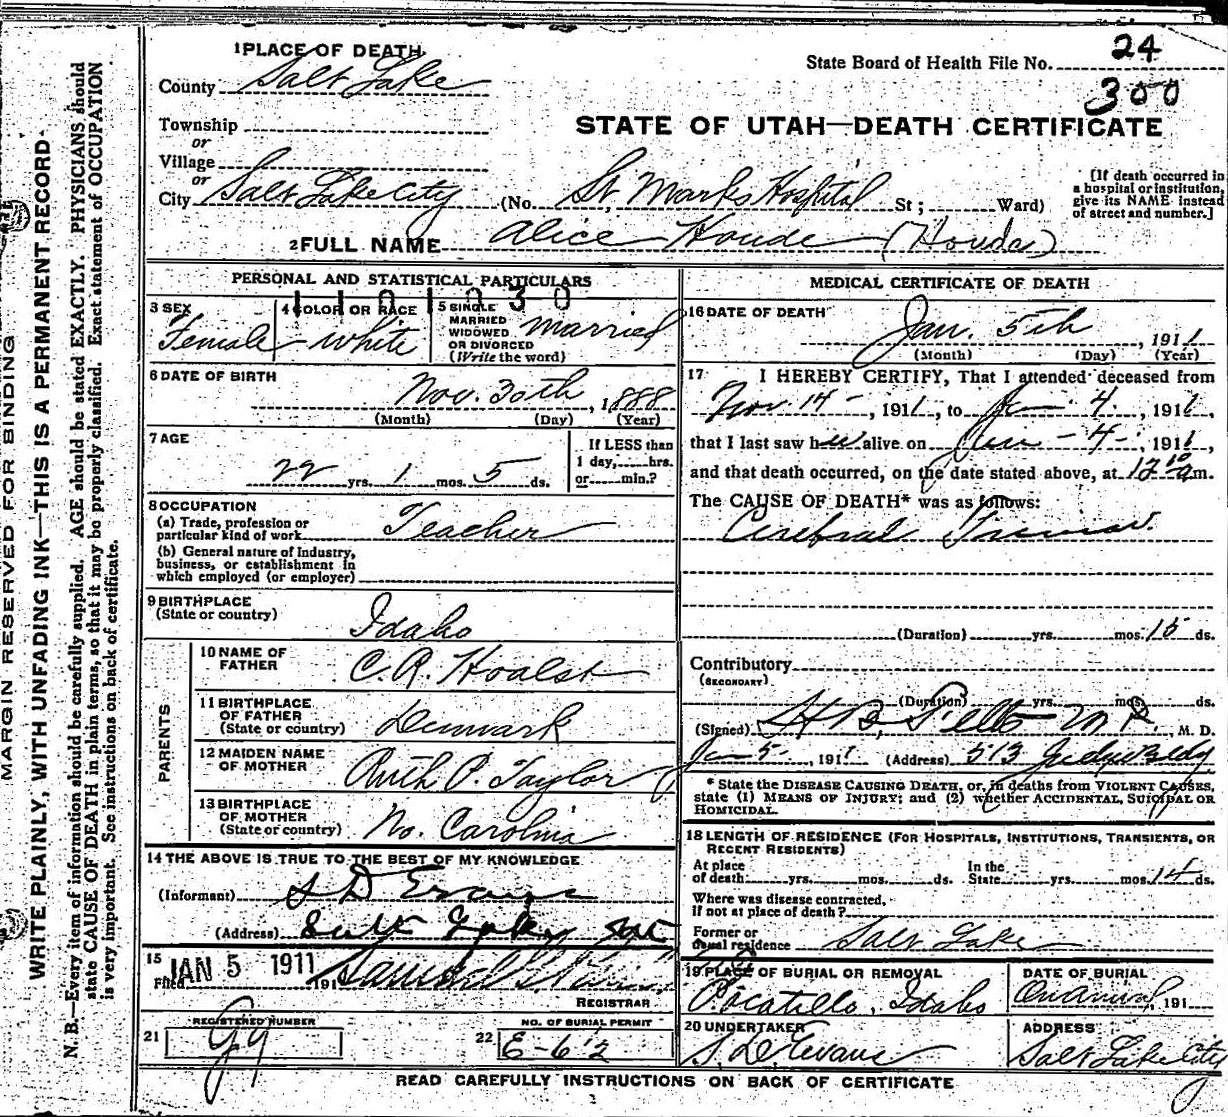 MARGIN RESERVED FOR BINDING
WRITE PLAINLY, WITH UNFADING INK—THIS IS A PERMANENT RECORD.
N. B.—Every item of information should be carefully supplied. AGE should be stated EXACTLY. PHYSICIANS should
state CAUSE OF DEATH in plain terms, so that it may be properly classified. Exact statement of OCCUPATION
is very important. See instructions on back of certificate.
1 PLACE OF DEATH
State Board of Health File No. 24
300
County Salt Lake
STATE OF UTAH—DEATH CERTIFICATE
Township
or
Village
or
City Salt Lake City (No. St. Marks Hospital St; Ward)
[If death occurred in
a hospital or institution,
give its NAME instead
of street and number.]
2 FULL NAME Alice Houde (Houda)
PERSONAL AND STATISTICAL PARTICULARS
3 SEX Female
4 COLOR OR RACE white
5 SINGLE
MARRIED
WIDOWED
OR DIVORCED
(Write the word) married
6 DATE OF BIRTH
Nov. 30th, 1888
(Month) (Day) (Year)
7 AGE
22 yrs. 1 mos. 5 ds.
If LESS than
1 day, hrs.
or min.?
8 OCCUPATION
(a) Trade, profession or
particular kind of work Teacher
(b) General nature of Industry,
business, or establishment in
which employed (or employer)
9 BIRTHPLACE
(State or country) Idaho
PARENTS
10 NAME OF
FATHER C. R. Hoalst
11 BIRTHPLACE
OF FATHER
(State or country) Denmark
12 MAIDEN NAME
OF MOTHER Ruth P. Taylor
13 BIRTHPLACE
OF MOTHER
(State or country) No. Carolina
14 THE ABOVE IS TRUE TO THE BEST OF MY KNOWLEDGE
(Informant) S D Evans
(Address) Salt Lake
15 Filed JAN 5 1911 191
REGISTRAR
21 REGISTERED NUMBER
22 NO. OF BURIAL PERMIT
E-612
MEDICAL CERTIFICATE OF DEATH
16 DATE OF DEATH
Jan. 5th, 1911
(Month) (Day) (Year)
17 I HEREBY CERTIFY, That I attended deceased from
Nov. 14, 1911, to Jan 4, 1911,
that I last saw her alive on Jan - 4 -, 1911,
and that death occurred, on the date stated above, at 12 10 am.
The CAUSE OF DEATH* was as follows:
Cerebral Tumor.
(Duration) yrs. mos. 15 ds.
Contributory
(SECONDARY)
(Duration) yrs. mos. ds.
(Signed) H B, M. D.
Jan 5, 1911 (Address) 513 Judge Bldg
* State the DISEASE CAUSING DEATH, or, in deaths from VIOLENT CAUSES,
state (1) MEANS OF INJURY; and (2) whether ACCIDENTAL, SUICIDAL OR
HOMICIDAL.
18 LENGTH OF RESIDENCE (FOR HOSPITALS, INSTITUTIONS, TRANSIENTS, OR
RECENT RESIDENTS)
At place
of death yrs. mos. ds.
In the
State yrs. mos. 14 ds.
Where was disease contracted,
if not at place of death?
Former or
usual residence Salt Lake
19 PLACE OF BURIAL OR REMOVAL
Pocatello, Idaho
DATE OF BURIAL
On arrival, 191
20 UNDERTAKER
S. D. Evans
ADDRESS
Salt Lake City
READ CAREFULLY INSTRUCTIONS ON BACK OF CERTIFICATE